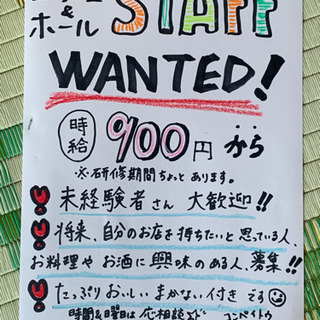 & STAFF
ホール
WANTED!
時給 900円から
※研修期間ちょっとあります。
未経験者さん 大歓迎!!
将来、自分のお店を持ちたいと思っている人、
お料理やお酒に興味のある人、募集!!
たっぷりおいしいまかない付きです
時間&曜日は応相談 コンペイトウ